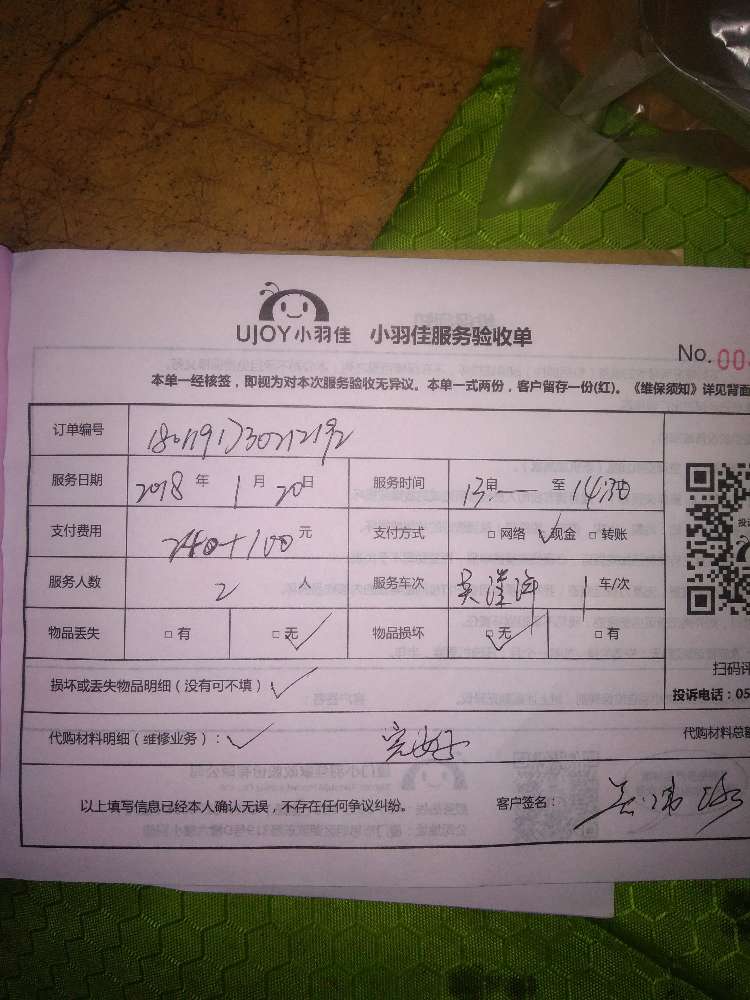 UJOY小羽佳 小羽佳服务验收单
No.00
本单一经核签，即视为对本次服务验收无异议。本单一式两份，客户留存一份(红)。《维保须知》详见背面
订单编号
服务日期 2018 年 1 月 20 日 服务时间 13: 至 14:30
支付费用 240+100 元 支付方式 □ 网络 ✓现金 □ 转账
服务人数 2 人 服务车次 1 车/次
物品丢失 □ 有 □ 无 ✓ 物品损坏 □ 无 ✓ □ 有
损坏或丢失物品明细（没有可不填） ✓
扫码评
投诉电话：05
代购材料明细（维修业务）： ✓ 完好 代购材料总额
以上填写信息已经本人确认无误，不存在任何争议纠纷。 客户签名：